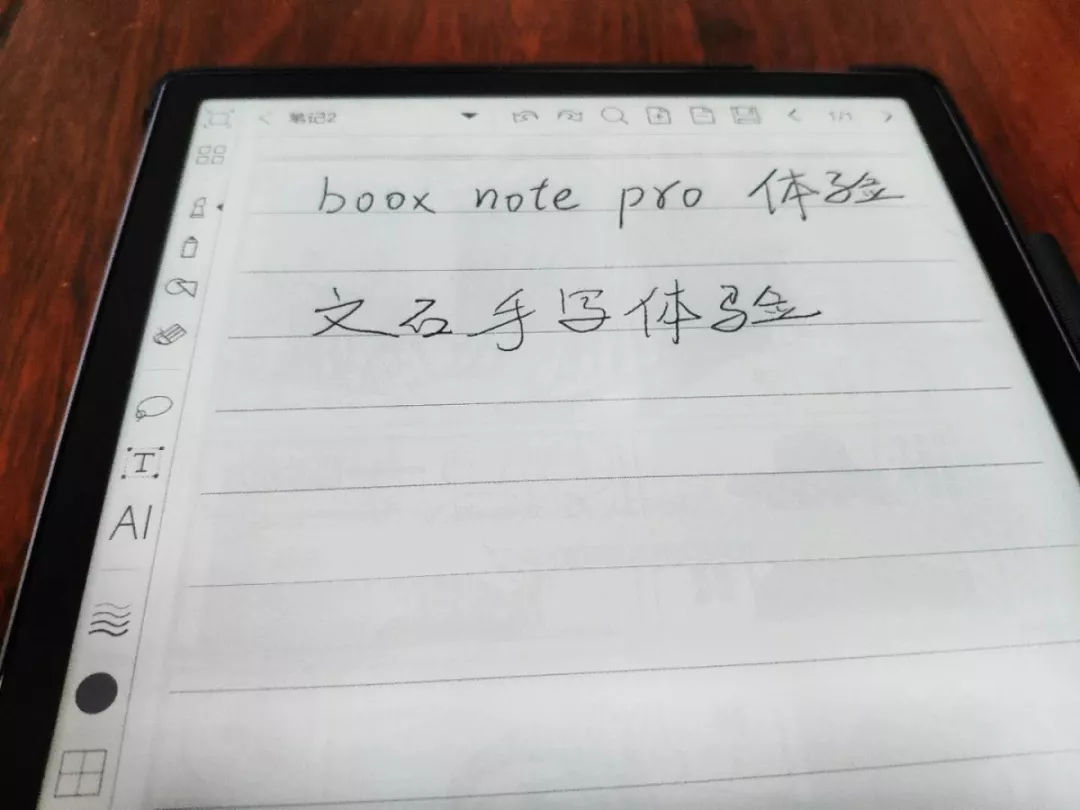 笔记2
1/1
boox note pro 体验
文石手写体验
T
AI